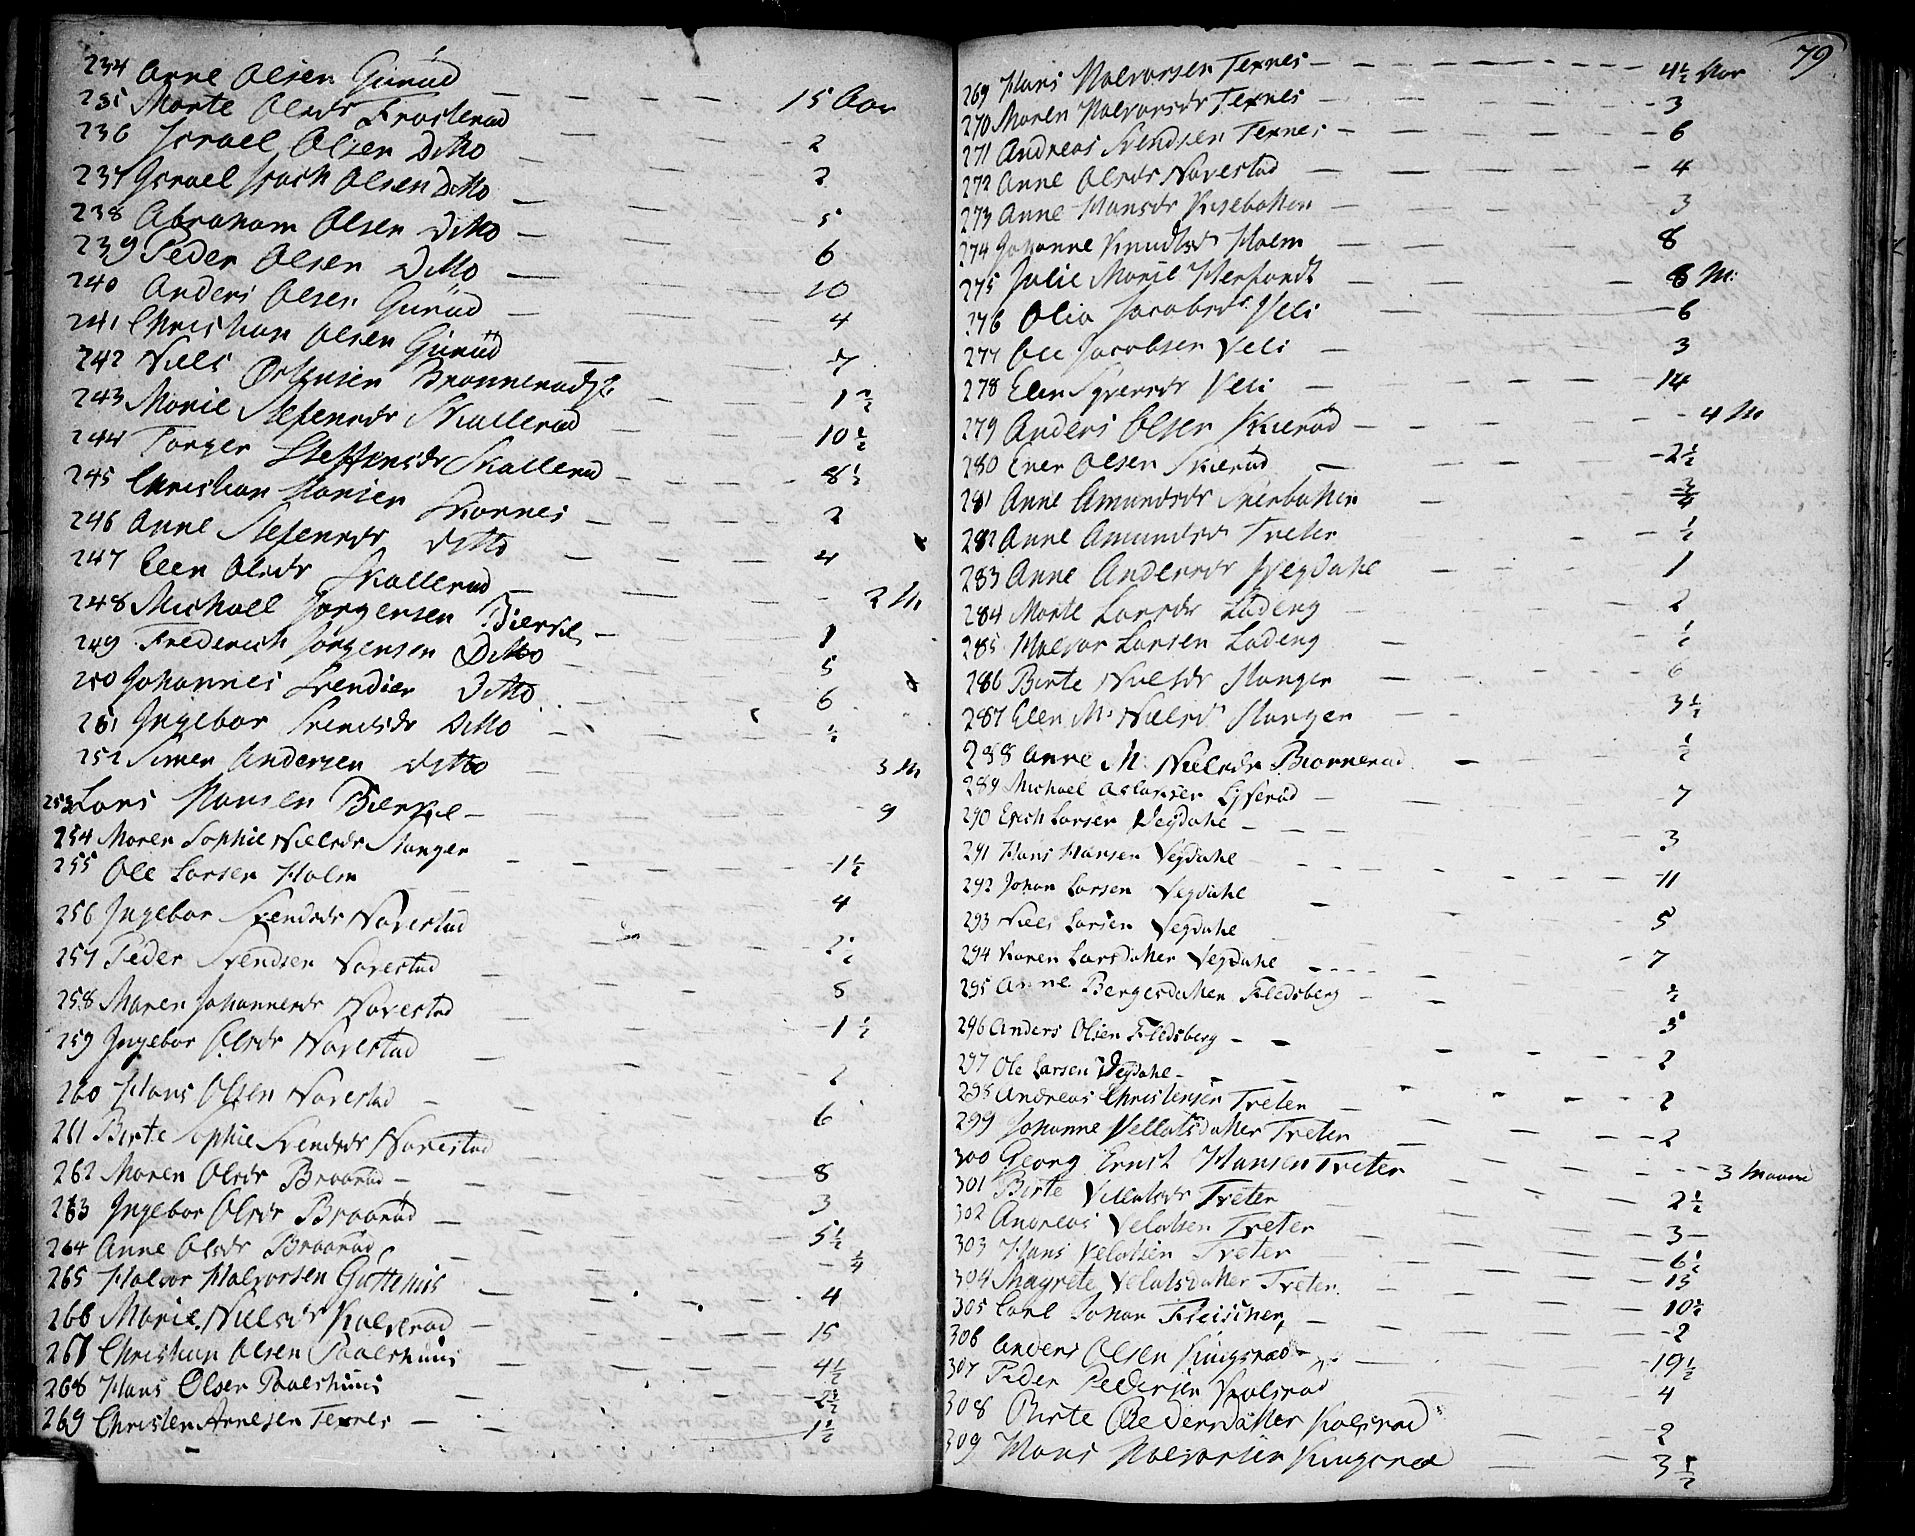 234 Anne Olsen Gurud — 15 Aar
235 Marte Olsdr Frosterud — 2
236 Israel Olsen Ditto — 2
237 Israel Isach Olsen Ditto — 5
238 Abraham Olsen Ditto — 6
239 Peder Olsen Ditto — 10
240 Anders Olsen Gurud — 4
241 Christian Olsen Gurud — 7
242 Niels — 1 1/2
243 Marie Stefensdr Skallerud — 10 1/2
244 Torger Steffensdr Skallerud — 8 1/2
245 Christian Hansen Skornes — 2
246 Anne Stefensdr ditto — 4
247 Elen Olsdr Skallerud — 2 M
248 Michael Jørgensen Bierke — 1
249 Frederich Jørgensen Ditto — 5
250 Johannes Svendsen Ditto — 6
251 Ingebor Svendsdr Ditto — 1/2
252 Simen Andersen ditto — 3 M
253 Lars Hansen Bierke — 9
254 Maren Sophie Nielsdr Stanger — 1 1/2
255 Ole Larsen Holm — 4
256 Ingebor Svendsdr Navestad — 2 1/2
257 Peder Svendsen Navestad — 8
258 Maren Johannesdr Navestad — 1 1/2
259 Ingebor Olsdr Navestad — 2
260 Hans Olsen Navestad — 6
261 Birte Sophie Svendsdr Navestad — 8
262 Maren Olsdr Braarud — 3
263 Ingebor Olsdr Braarud — 5 1/2
264 Anne Olsdr Braarud — 1/4
265 Halvor Halvorsen Guttehus — 4
266 Marie Nielsdr Kalsrud — 15
267 Christian Olsen Paalshuus — 4 1/2
268 Hans Olsen Paalshuus — 2 1/2
269 Christen Arnesen Texnes — 1 1/2
79
269 Hans Halvorsen Texnes — 4 1/2 Aar
270 Maren Halvorsdr Texnes — 3
271 Andreas Svendsen Texnes — 6
272 Anne Olsdr Navestad — 4
273 Anne Hansdr — 3
274 Johanne Knudtsdr Holm — 8
275 Julie Marie — 8 M:
276 Olia Jacobsdr Veli — 6
277 Ole Jacobsen Veli — 3
278 Elen Syversdr Veli — 14
279 Anders Olsen Skierud — 4 M
280 Ener Olsen Skierud — 2 1/2
281 Anne Amundsdr — 3/4
282 Anne Amundsdr Treter — 1/2
283 Anne Andersdr Vegdahl — 1
284 Marte Larsdr Ladeng — 2
285 Halvor Larsen Ladeng — 1/2
286 Birte Nielsdr Stanger — 6
287 Elen M: Nielsdr Stanger — 3 1/2
288 Anne M: Nielsdr Bronnerud — 1/2
289 Michael Aslaksen — 7
290 Erich Larsen Vegdahl — 3
291 Hans Hansen Vegdahle — 11
292 Johan Larsen Vegdahle — 5
293 Niels Larsen Vegdahle — 7
294 Karen Larsdatter Vegdahle — 1/2
295 Anne Bergesdatter Fledsberg — 3
296 Anders Olsen Fledsberg — 2
297 Ole Larsen Vegdahle — 2
298 Andreas Christensen Treter — 2
299 Johanne Vellatsdatter Treter — 3 Maaned
300 Georg Ernst Hansen Treter — 2 1/2
301 Birte Vellatsdr Treter — 3
302 Andreas Velatsen Treter — 6 1/2
303 Hans Velatsen Treter — 15
304 Magrete Velatsdatter Treter — 10 1/2
305 Carl Johan Fleischer — 2
306 Anders Olsen Kingsrød — 19 1/2
307 Peder Pedersen Kalsrud — 4
308 Birte Pedersdatter Kalsrud — 2
309 Hans Halvorsen Kingsrød — 3 1/2